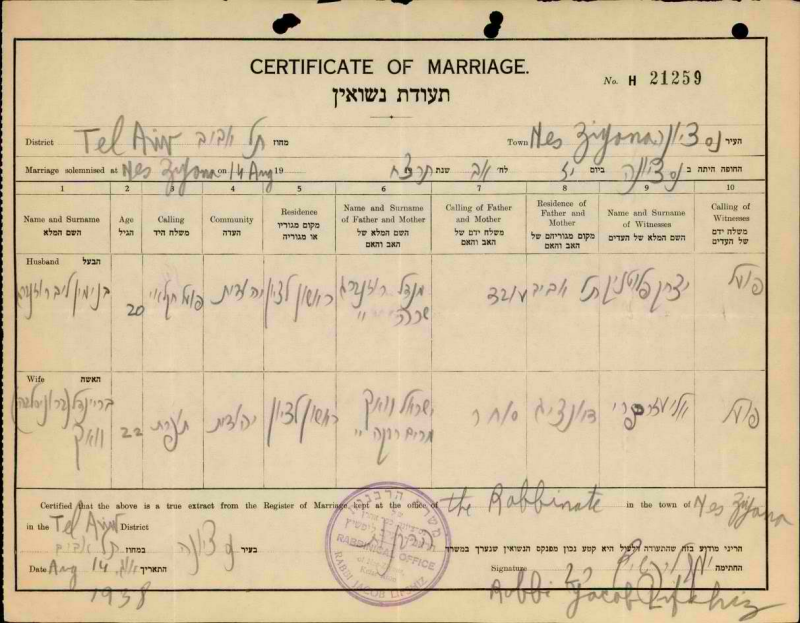 CERTIFICATE OF MARRIAGE.
No. H 21259
תעודת נשואין
District Tel Aviv תל אביב מחוז
Town Nes Ziyona נס ציונה העיר
Marriage solemnised at Nes Ziyona on 14 Aug 19
החופה היתה ב נס ציונה ביום יז לח' אב שנת תרצח
1 2 3 4 5 6 7 8 9 10
Name and Surname
השם המלא
Age
הגיל
Calling
משלח היד
Community
העדה
Residence
מקום מגוריו
או מגוריה
Name and Surname
of Father and Mother
השם המלא של
האב והאם
Calling of Father
and Mother
משלח ידם של
האב והאם
Residence of
Father and
Mother
מקום מגוריהם של
האב והאם
Name and Surname
of Witnesses
השם המלא של העדים
Calling of
Witnesses
משלח ידם
של העדים
Husband הבעל
בנימין ליב רוזנברג
20
פועל חקלאי
יהודית
ראשון לציון
מנדל רוזנברג
שרה
עובד
תל אביב
יצחק
פועל
Wife האשה
בריינדל
וואק
22
תופרת
יהודית
ראשון לציון
ישראל וואק
מרים רבקה
סוחר
דאנציג
אליעזר
פועל
Certified that the above is a true extract from the Register of Marriage, kept at the office of the Rabbinate in the town of Nes Ziyona
in the Tel Aviv District
הריני מודיע בזה שהתעודה הלעיל היא קטע נכון מפנקס הנשואין שנערך במשרד
בעיר נס ציונה במחוז תל אביב
Date Aug 14 התאריך
1938
Signature החתימה
Rabbi Jacob Lifshiz
RABBINICAL OFFICE
RABBI JACOB LIFSHIZ